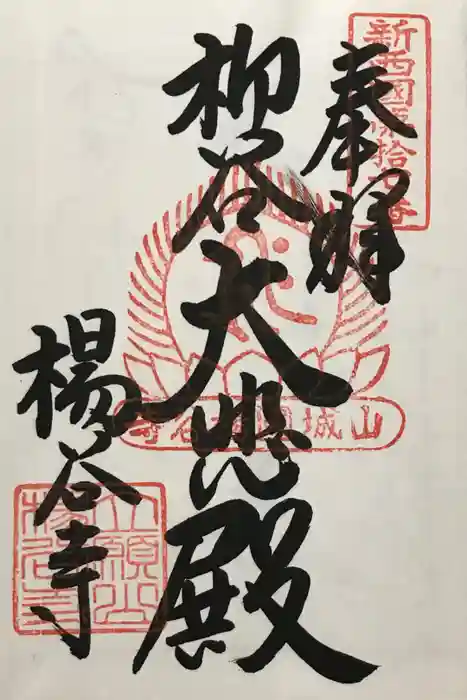 奉拝
新西國第拾七番
柳谷大悲殿
山城國柳谷寺
楊谷寺
立願山楊谷寺